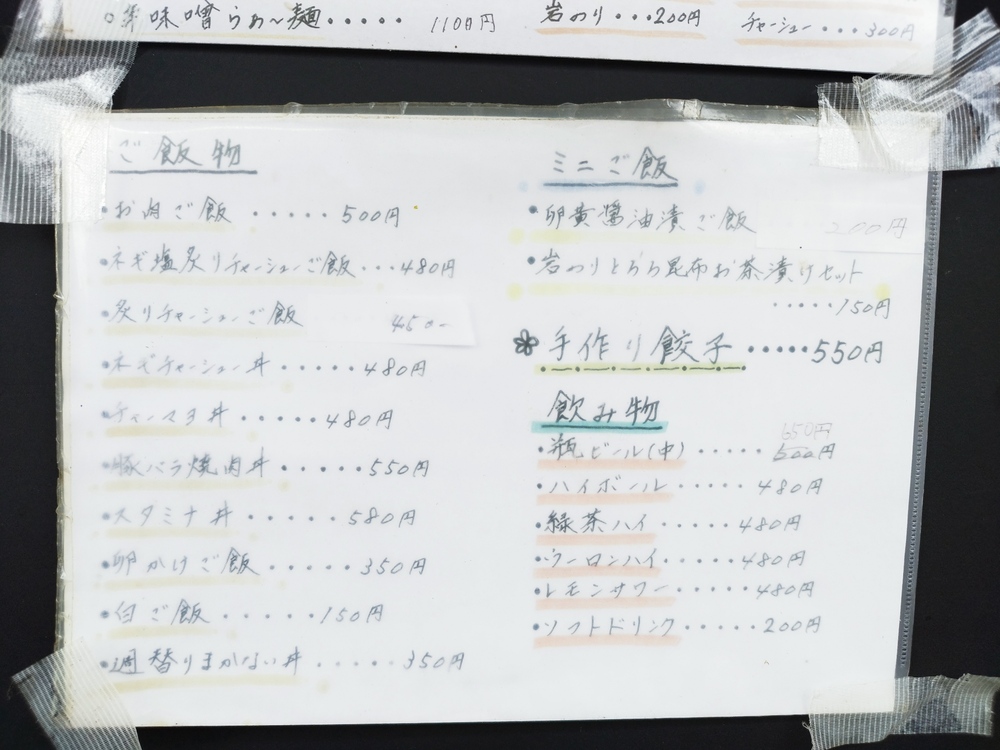 味噌らぁ～麺・・・・・ 1100円
岩のり・・・200円
チャーシュー・・・300円
ご飯物
・お肉ご飯・・・・・500円
・ネギ塩炙りチャーシューご飯・・・480円
・炙りチャーシューご飯 450-
・ネギチャーシュー丼・・・・・480円
・チャーマヨ丼・・・・・480円
・豚バラ焼肉丼・・・・・550円
・スタミナ丼・・・・・・580円
・卵かけご飯・・・・・350円
・白ご飯・・・・・・150円
・週替りまかない丼・・・・・350円
ミニご飯
・卵黄醤油漬ご飯 200円
・岩のりとろろ昆布お茶漬けセット
・・・・・150円
手作り餃子・・・・・550円
飲み物
650円
・瓶ビール(中)・・・・・600円
・ハイボール・・・・・480円
・緑茶ハイ・・・・・480円
・ウーロンハイ・・・・・480円
・レモンサワー・・・・・480円
・ソフトドリンク・・・・・200円